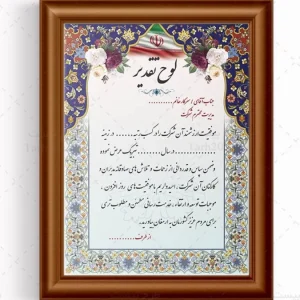 لوح تقدیر
جناب آقای / سرکار خانم ..........
مدیریت محترم شرکت
موفقیت ارزشمند آن شرکت را در کسب رتبه ........ در زمینه
.......... در سال ......... تبریک عرض نموده
و ضمن سپاس و قدردانی از زحمات و تلاش های صادقانه مدیران و
کارکنان آن شرکت، امیدواریم با موفقیت های روز افزون،
موجبات توسعه و ارتقاء خدمت رسانی مطمئن و مطلوب تری
برای مردم عزیز کشورمان به ارمغان بیاورید.
از طرف ..........